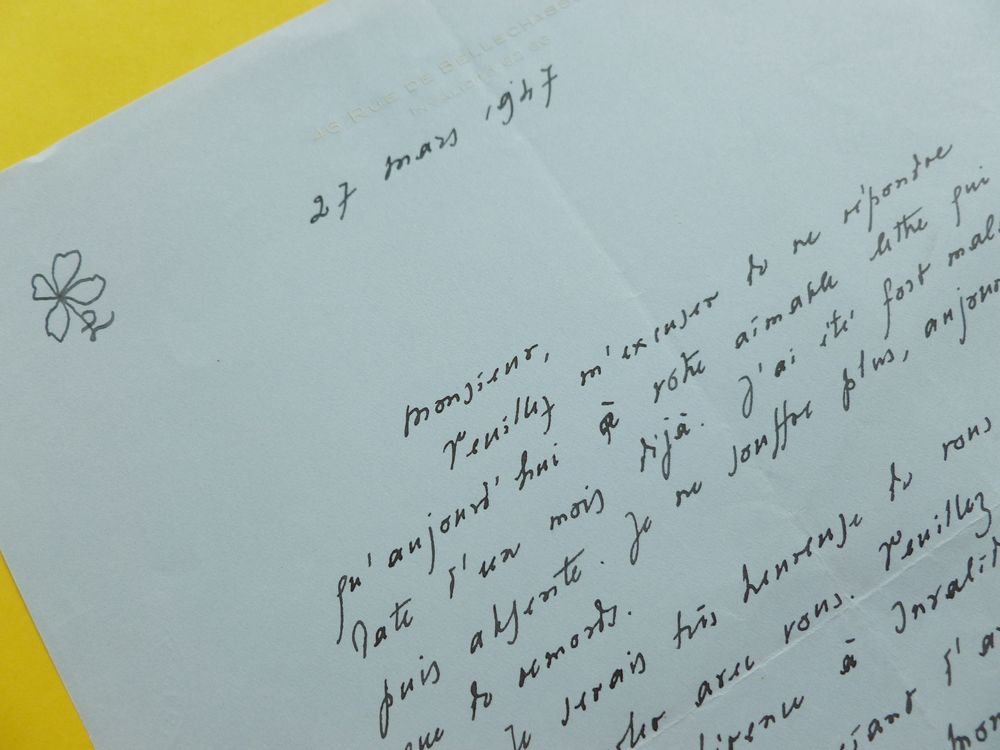 46 RUE DE BELLECHASSE
INVALIDES
27 mars 1947
Monsieur,
Veuillez m'excuser de ne répondre
qu'aujourd'hui à votre aimable lettre qui
date d'un mois déjà. J'ai été fort mal
puis absente. Je ne souffre plus, aujour
que de remords.
Je serais très heureuse de vous
avec vous. Veuillez
à Invalid
d'a
mon